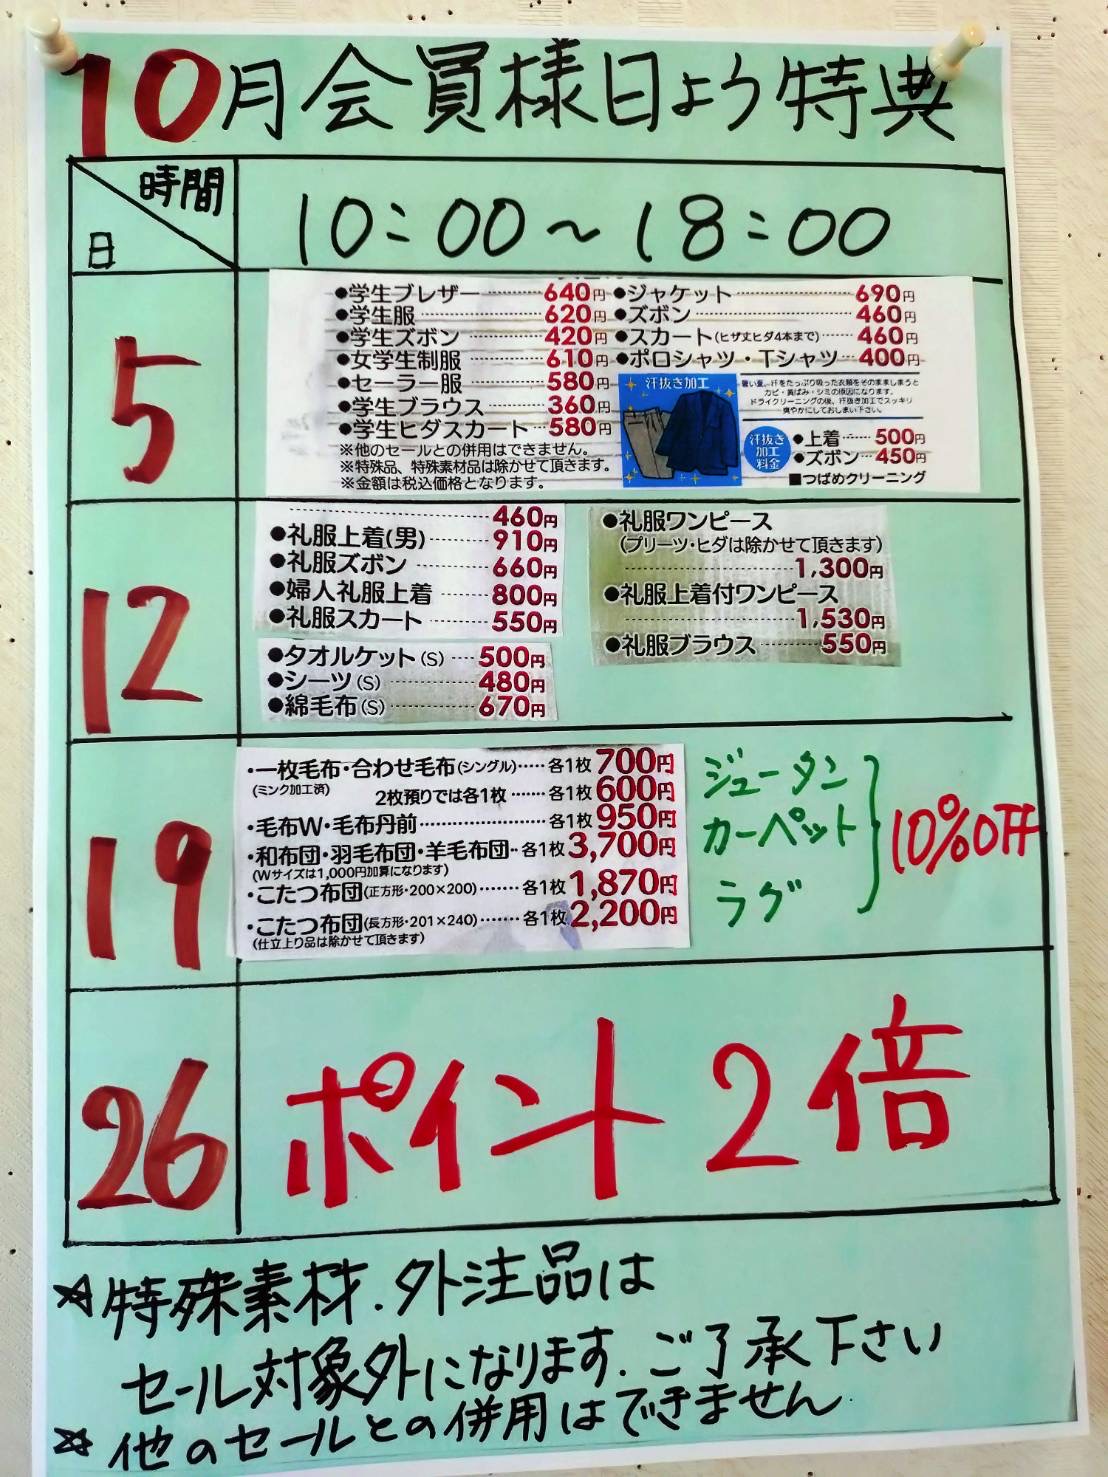 10月会員様日よう特典
時間
日
10:00～18:00
5
●学生ブレザー 640円
●学生服 620円
●学生ズボン 420円
●女学生制服 610円
●セーラー服 580円
●学生ブラウス 360円
●学生ヒダスカート 580円
※他のセールとの併用はできません。
※特殊品、特殊素材品は除かせて頂きます。
※金額は税込価格となります。
●ジャケット 690円
●ズボン 460円
●スカート(ヒザ丈ヒダ4本まで) 460円
●ポロシャツ・Tシャツ 400円
汗抜き加工
暑い夏、汗をたっぷり吸った衣類をそのまましまうと
カビ・黄ばみ・シミの原因になります。
ドライクリーニングの後、汗抜き加工でスッキリ
爽やかにしておしまい下さい。
汗抜き
加工
料金
●上着 500円
●ズボン 450円
■つばめクリーニング
12
460円
●礼服上着(男) 910円
●礼服ズボン 660円
●婦人礼服上着 800円
●礼服スカート 550円
●タオルケット(S) 500円
●シーツ(S) 480円
●綿毛布(S) 670円
●礼服ワンピース
(プリーツ・ヒダは除かせて頂きます)
1,300円
●礼服上着付ワンピース
1,530円
●礼服ブラウス 550円
19
・一枚毛布・合わせ毛布(シングル) 各1枚 700円
(ミンク加工済) 2枚預りでは各1枚 各1枚 600円
・毛布W・毛布丹前 各1枚 950円
・和布団・羽毛布団・羊毛布団 各1枚 3,700円
(Wサイズは1,000円加算になります)
・こたつ布団(正方形・200×200) 各1枚 1,870円
・こたつ布団(長方形・201×240) 各1枚 2,200円
(仕立上り品は除かせて頂きます)
ジュータン
カーペット
ラグ
10%OFF
26
ポイント2倍
☆特殊素材.外注品は
セール対象外になります.ご了承下さい
☆他のセールとの併用はできません